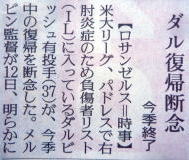 ダル復帰断念
今季終了
【ロサンゼルス＝時事】
米大リーグ、パドレスで右
肘炎症のため負傷者リスト
(IL)に入っているダルビ
ッシュ有投手37が、今季
中の復帰を断念した。メル
ビン監督が12日、明らかに